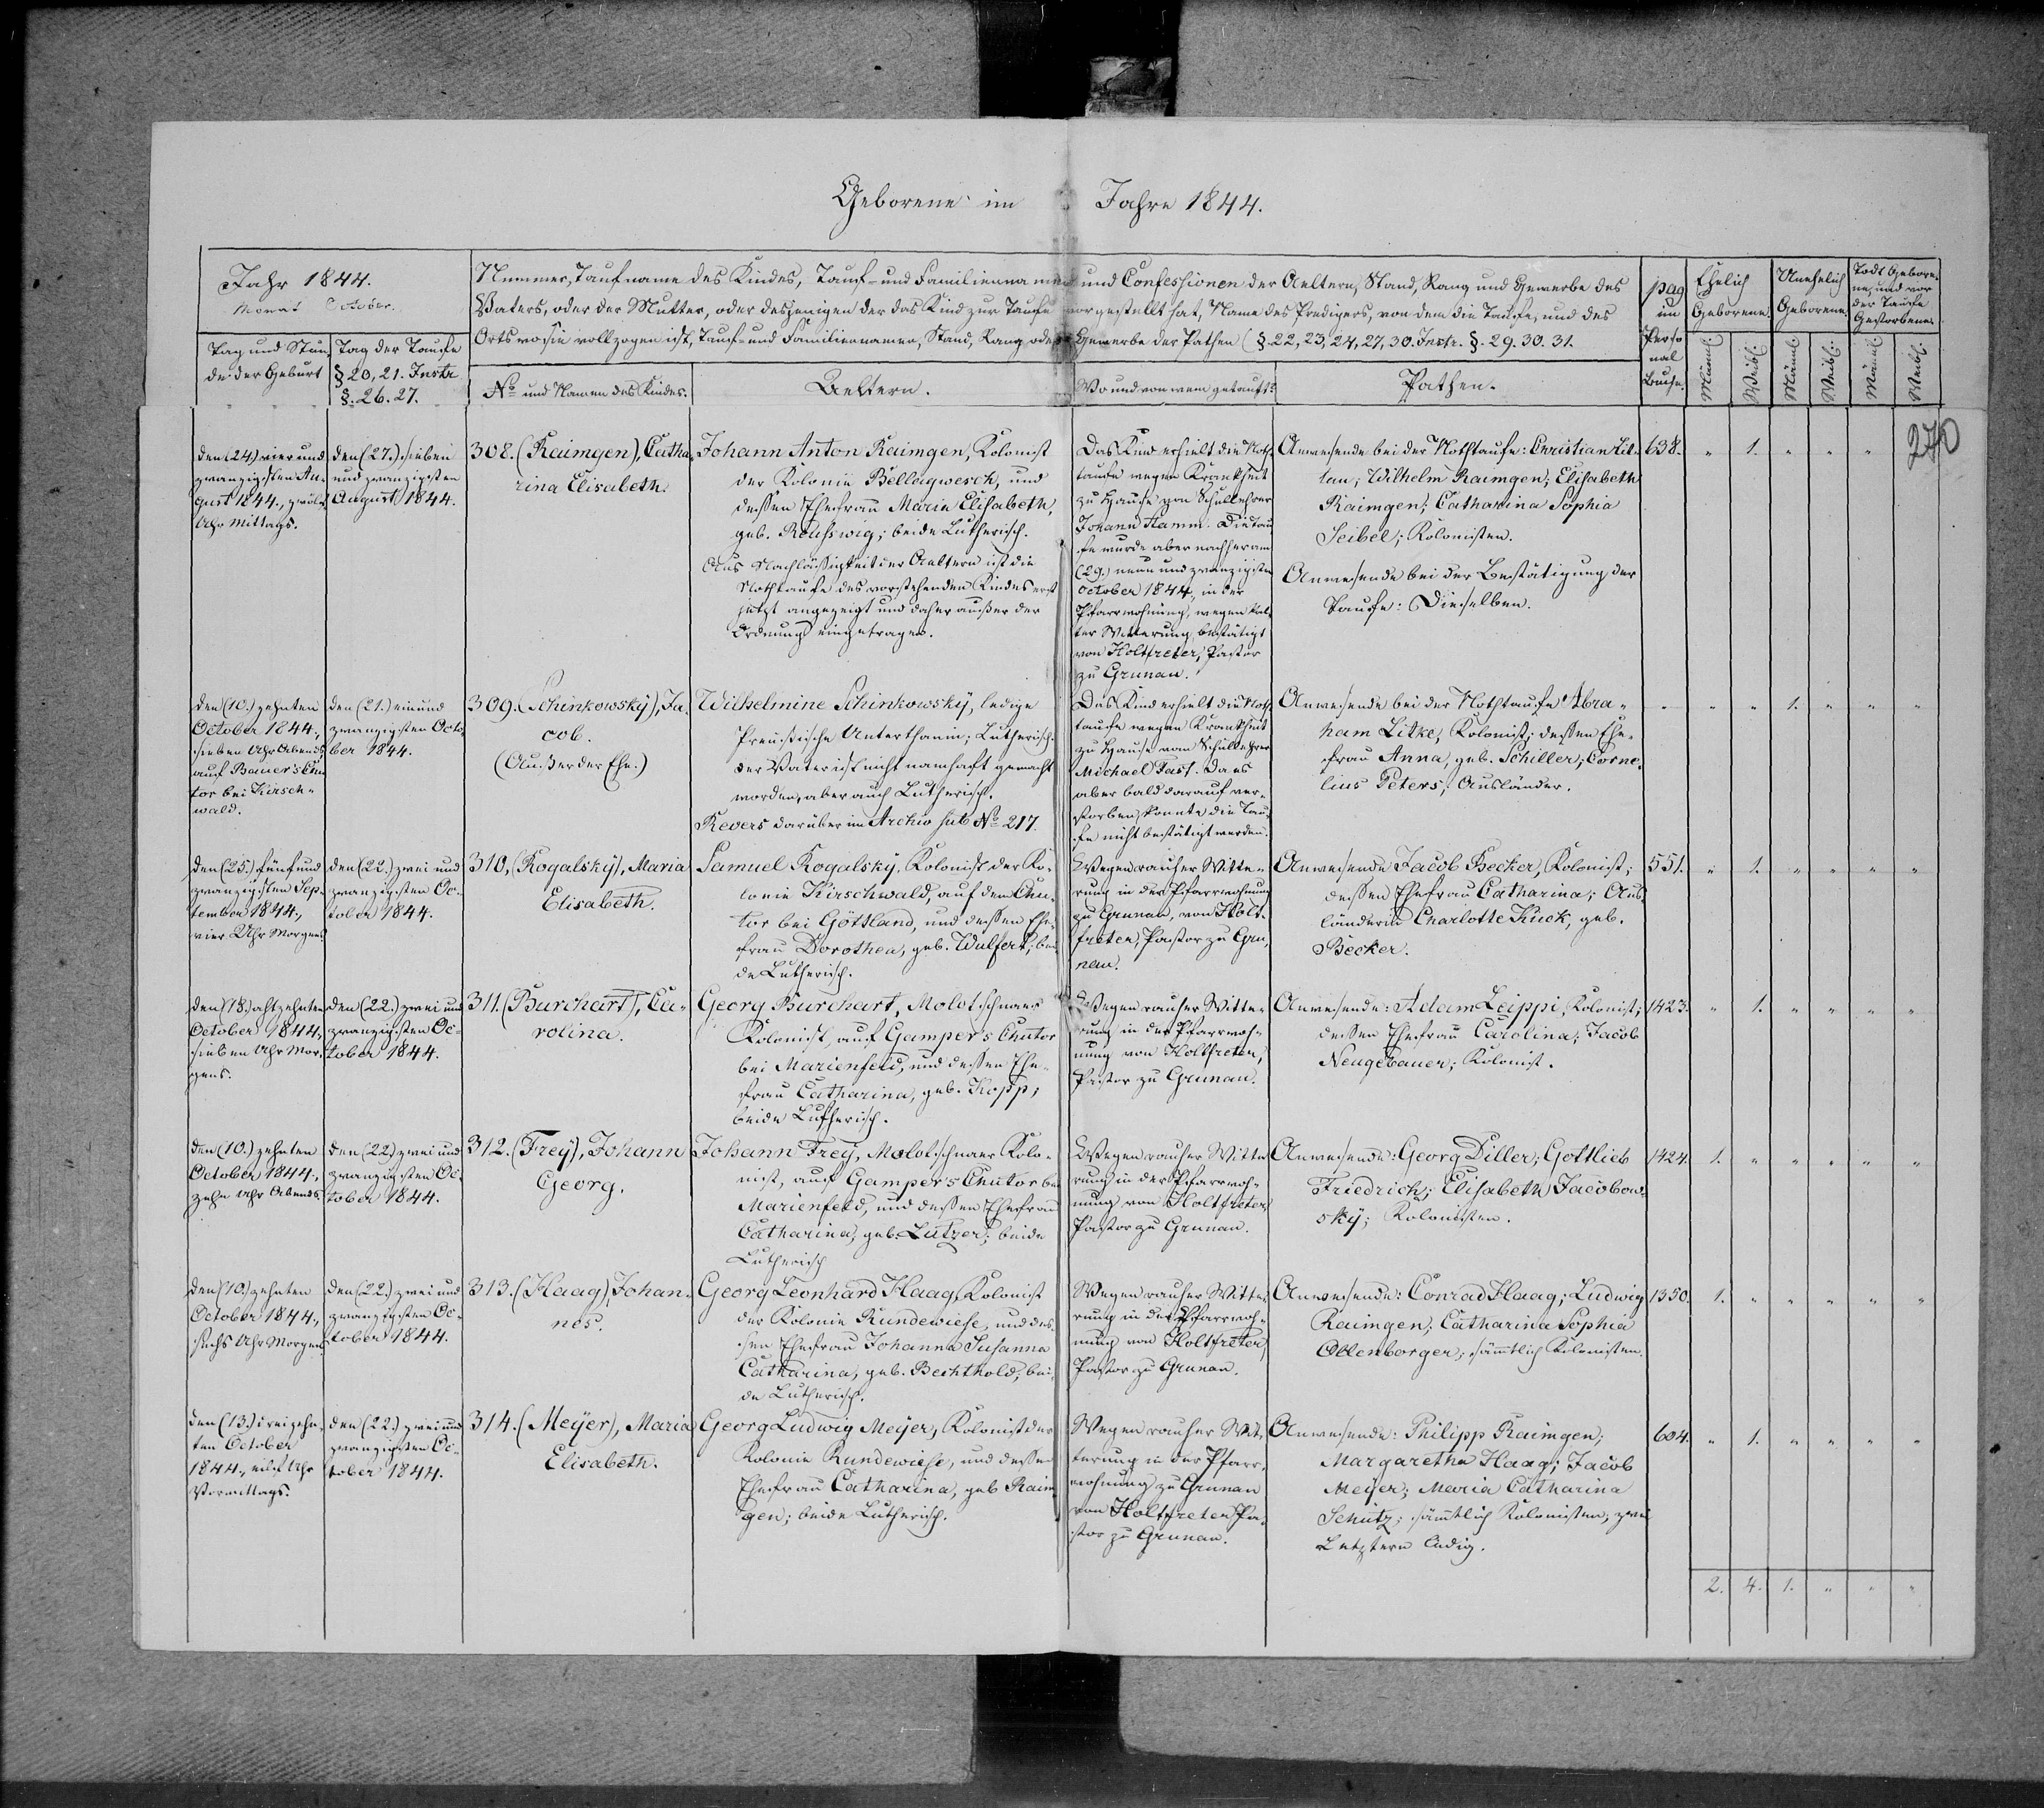 Geborene im Jahre 1844.
Jahr 1844.
Monat October.
Tag und Stun-
de der Geburt
Tag der Taufe
§ 20, 21. Instr.
§. 26. 27.
Nummer, Taufname des Kindes, Tauf- und Familiennamen und Confessionen der Aeltern, Stand, Rang und Gewerbe des
Vaters, oder der Mutter, oder desjenigen der das Kind zur Taufe vorgestellt hat, Name des Predigers, von dem die Taufe, und des
Orts wo sie vollzogen ist, Tauf- und Familiennamen, Stand, Rang oder Gewerbe der Pathen (§. 22, 23, 24, 27, 30. Instr. §. 29. 30. 31.
No und Namen des Kindes.
Aeltern.
Wo und von wem getauft?
Pathen.
pag
im
Perso
nal
Buche.
Ehelich
Geborene.
Unehelich
Geborene.
Todt Gebore-
ne, und vor
der Taufe
Gestorbene.
Männl.
Weibl.
Männl.
Weibl.
Männl.
Weibl.
270
den (24) vier und
zwanzigsten Au-
gust 1844., zwölf
Uhr Mittags.
den (27.) sieben
und zwanzigsten
August 1844.
308. (Raimgen), Catha-
rina Elisabeth.
Johann Anton Raimgen, Kolonist
der Kolonie Bellagwesch, und
dessen Ehefrau Maria Elisabeth,
geb. Reusswig; beide Lutherisch.
Aus Nachlässigkeit der Aeltern ist die
Nothtaufe des vorstehenden Kindes erst
jetzt angezeigt und daher außer der
Ordnung eingetragen.
Das Kind erhielt die Noth-
taufe wegen Krankheit
zu Hause von Schullehrer
Johann Hamm. Die Tau-
fe wurde aber nachher am
(29.) neun und zwanzigsten
October 1844., in der
Pfarrwohnung, wegen kal-
ter Witterung, bestätigt
von Holtfreter, Pastor
zu Grunau.
Anwesende bei der Nothtaufe: Christian Lit-
tau; Wilhelm Raimgen; Elisabeth
Raimgen; Catharina Sophia
Seibel; Kolonisten.
Anwesende bei der Bestätigung der
Taufe: Dieselben.
638. " 1. " " "
den (10.) zehnten
October 1844.,
sieben Uhr Abends,
auf Bauer's Chu
tor bei Kirsch-
wald.
den (21.) ein und
zwanzigsten Octo-
ber 1844.
309. (Schinkowsky), Ja-
cob.
(Außer der Ehe.)
Wilhelmine Schinkowsky, ledige
Preußische Unterthanin; Lutherisch.
der Vater ist nicht namhaft gemacht
worden, aber auch Lutherisch.
Revers darüber im Archiv sub No 217.
Das Kind erhielt die Noth-
taufe wegen Krankheit
zu Hause vom Schullehrer
Michael Fast. Da es
aber bald darauf ver-
storben, konnte die Tau-
fe nicht bestätigt werden.
Anwesende bei der Nothtaufe Abra-
ham Litke, Kolonist; dessen Ehe-
frau Anna, geb. Schiller; Corne-
lius Peters, Ausländer.
" " " 1. " " "
den (25.) fünf und
zwanzigsten Sep-
tember 1844.,
vier Uhr Morgens
den (22.) zwei und
zwanzigsten Oc-
tober 1844.
310. (Rogalsky), Maria
Elisabeth.
Samuel Rogalsky, Kolonist der Ko-
lonie Kirschwald, auf dem Chu-
tor bei Göttland, und dessen Ehe-
frau Dorothea, geb. Wulfert; bei-
de Lutherisch.
Wegen rauher Witte-
rung in der Pfarrwohnung
zu Grunau, von Holt-
freter, Pastor zu Gru-
nau.
Anwesende Jacob Becker, Kolonist;
dessen Ehefrau Catharina; Aus-
länderin Charlotte Kuck, geb.
Becker.
551. " 1. " " " "
den (18.) achtzehnten
October 1844.,
sieben Uhr Mor-
gens.
den (22.) zwei und
zwanzigsten Oc-
tober 1844.
311. (Burchart), Ca-
rolina.
Georg Burchart, Molotschnaer
Kolonist, auf Gamper's Chutor
bei Marienfeld, und dessen Ehe-
frau Catharina, geb. Kopp;
beide Lutherisch.
Wegen rauher Witte-
rung in der Pfarrwoh-
nung von Holtfreter,
Pastor zu Grunau.
Anwesende: Adam Leippi, Kolonist;
dessen Ehefrau Carolina; Jacob
Neugebauer; Kolonist.
1423. " 1. " " " "
den (10.) zehnten
October 1844.,
zehn Uhr Abends.
den (22.) zwei und
zwanzigsten Oc-
tober 1844.
312. (Frey), Johann
Georg.
Johann Frey, Molotschnaer Kolo-
nist, auf Gamper's Chutor bei
Marienfeld, und dessen Ehefrau
Catharina, geb. Lutzer; beide
Lutherisch
Wegen rauher Witte-
rung in der Pfarrwoh-
nung von Holtfreter
Pastor zu Grunau.
Anwesende: Georg Diller; Gottlieb
Friedrich; Elisabeth Jacobow-
sky; Kolonisten.
1424. 1. " " " " "
den (10.) zehnten
October 1844.,
sechs Uhr Morgens
den (22.) zwei und
zwanzigsten Oc-
tober 1844.
313. (Haag), Johan-
nes.
Georg Leonhard Haag, Kolonist
der Kolonie Rundewiese, und des-
sen Ehefrau Johanna Susanna
Catharina, geb. Bechthold; bei-
de Lutherisch.
Wegen rauher Witte-
rung in der Pfarrwoh-
nung von Holtfreter,
Pastor zu Grunau.
Anwesende: Conrad Haag; Ludwig
Raimgen; Catharina Sophia
Ollenborger; sämmtlich Kolonisten.
1350. 1. " " " " "
den (13.) dreizehn-
ten October
1844., eilf Uhr
Vormittags.
den (22.) zwei und
zwanzigsten Oc-
tober 1844.
314. (Meyer), Maria
Elisabeth.
Georg Ludwig Meyer, Kolonist der
Kolonie Rundewiese, und dessen
Ehefrau Catharina, geb Raim-
gen; beide Lutherisch.
Wegen rauher Wit-
terung in der Pfarr-
wohnung zu Grunau
von Holtfreter Pa-
stor zu Grunau.
Anwesende: Philipp Raimgen;
Margaretha Haag; Jacob
Meyer; Maria Catharina
Schütz; sämmtlich Kolonisten, zwei
Letztern ledig.
604. " 1. " " " "
2. 4. 1. " " "